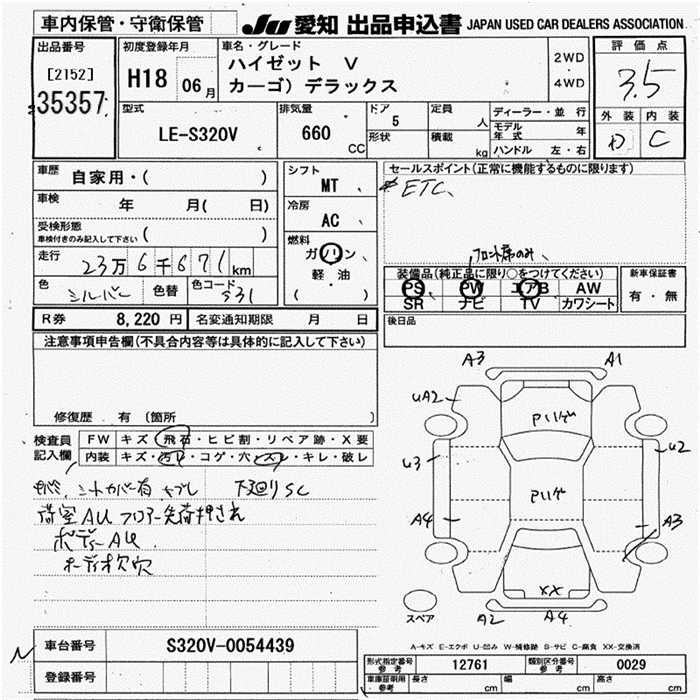 車内保管・守衛保管
JU 愛知 出品申込書 JAPAN USED CAR DEALERS ASSOCIATION
出品番号
[2152]
35357
初度登録年月
H18 06月
車名・グレード
ハイゼット V
カーゴ) デラックス
2WD
・
4WD
評価点
3.5
外装 内装
D C
型式
LE-S320V
排気量
660
CC
ドア
5
形状
定員
人
積載
kg
ディーラー・並行
モデル年式 年
ハンドル 左・右
車歴 自家用・( )
車検 年 月( 日)
受検形態
車検付きのみ記入して下さい ( )
走行 23万6千671km
色 シルバー 色替 色コード S31
シフト
MT
冷房
AC
燃料
ガソリン
軽・油
( )
セールスポイント(正常に機能するものに限ります)
ETC
フロント席のみ
装備品(純正品に限り○をつけてください)
PS PW エアB AW
SR ナビ TV カワシート
新車保証書
有・無
R券 8,220 円 名変通知期限 月 日
後日品
注意事項申告欄(不具合内容等は具体的に記入して下さい)
修復歴 有 〔箇所 〕
検査員
記入欄
FW キズ・飛石・ヒビ割・リペア跡・X要
内装 キズ・汚れ・コゲ・穴・スレ・キレ・破レ
シートカバー有 下廻りSC
荷室AU フロアー
ボディーAU
オーディオ欠穴
A3 A1
uA2
Pハゲ
u2
u3
Pハゲ
A4 A3
XX
スペア
A2 A4
A-キズ E-エクボ U-凹み W-補修跡 S-サビ C-腐食 XX-交換済
N
車台番号 S320V-0054439
登録番号
形式指定番号
参考
12761
類別区分番号
参考
0029
車庫証明用
参考
長さ cm 幅 cm 高さ cm